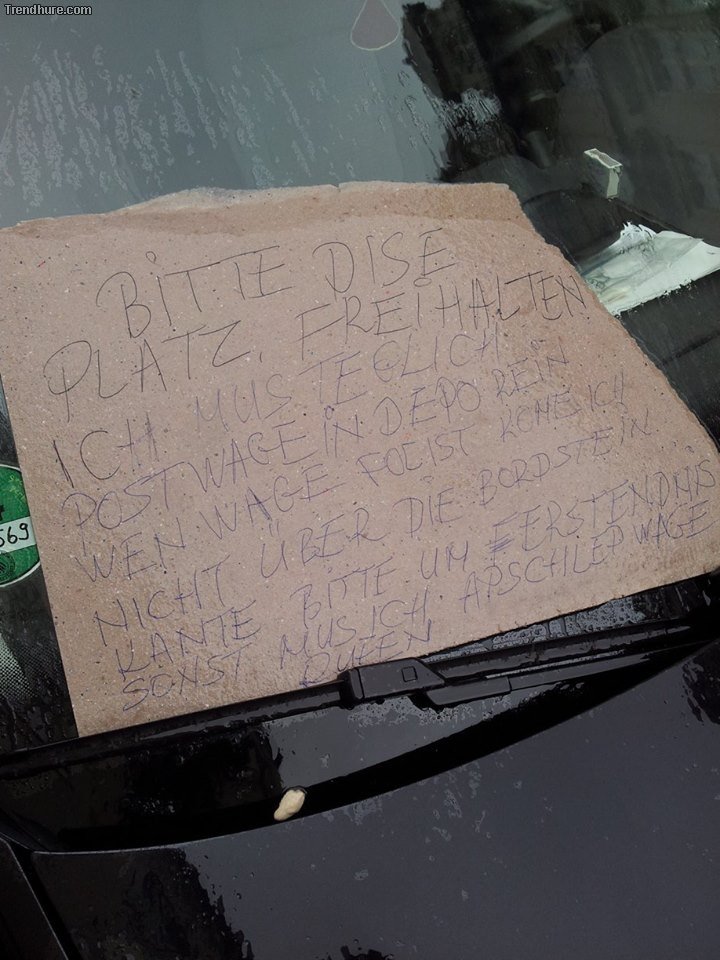 Trendhure.com
BITTE DISE
PLATZ. FREIHALTEN
ICH MUS TEGLICH
POSTWAGE IN DEPO REIN
WEN WAGE FOL IST KONE ICH
NICHT ÜBER DIE BORDSTEIN
KANTE BITTE UM FERSTENDNIS
SONST MUS ICH APSCHLEPWAGE
RUFEN
569